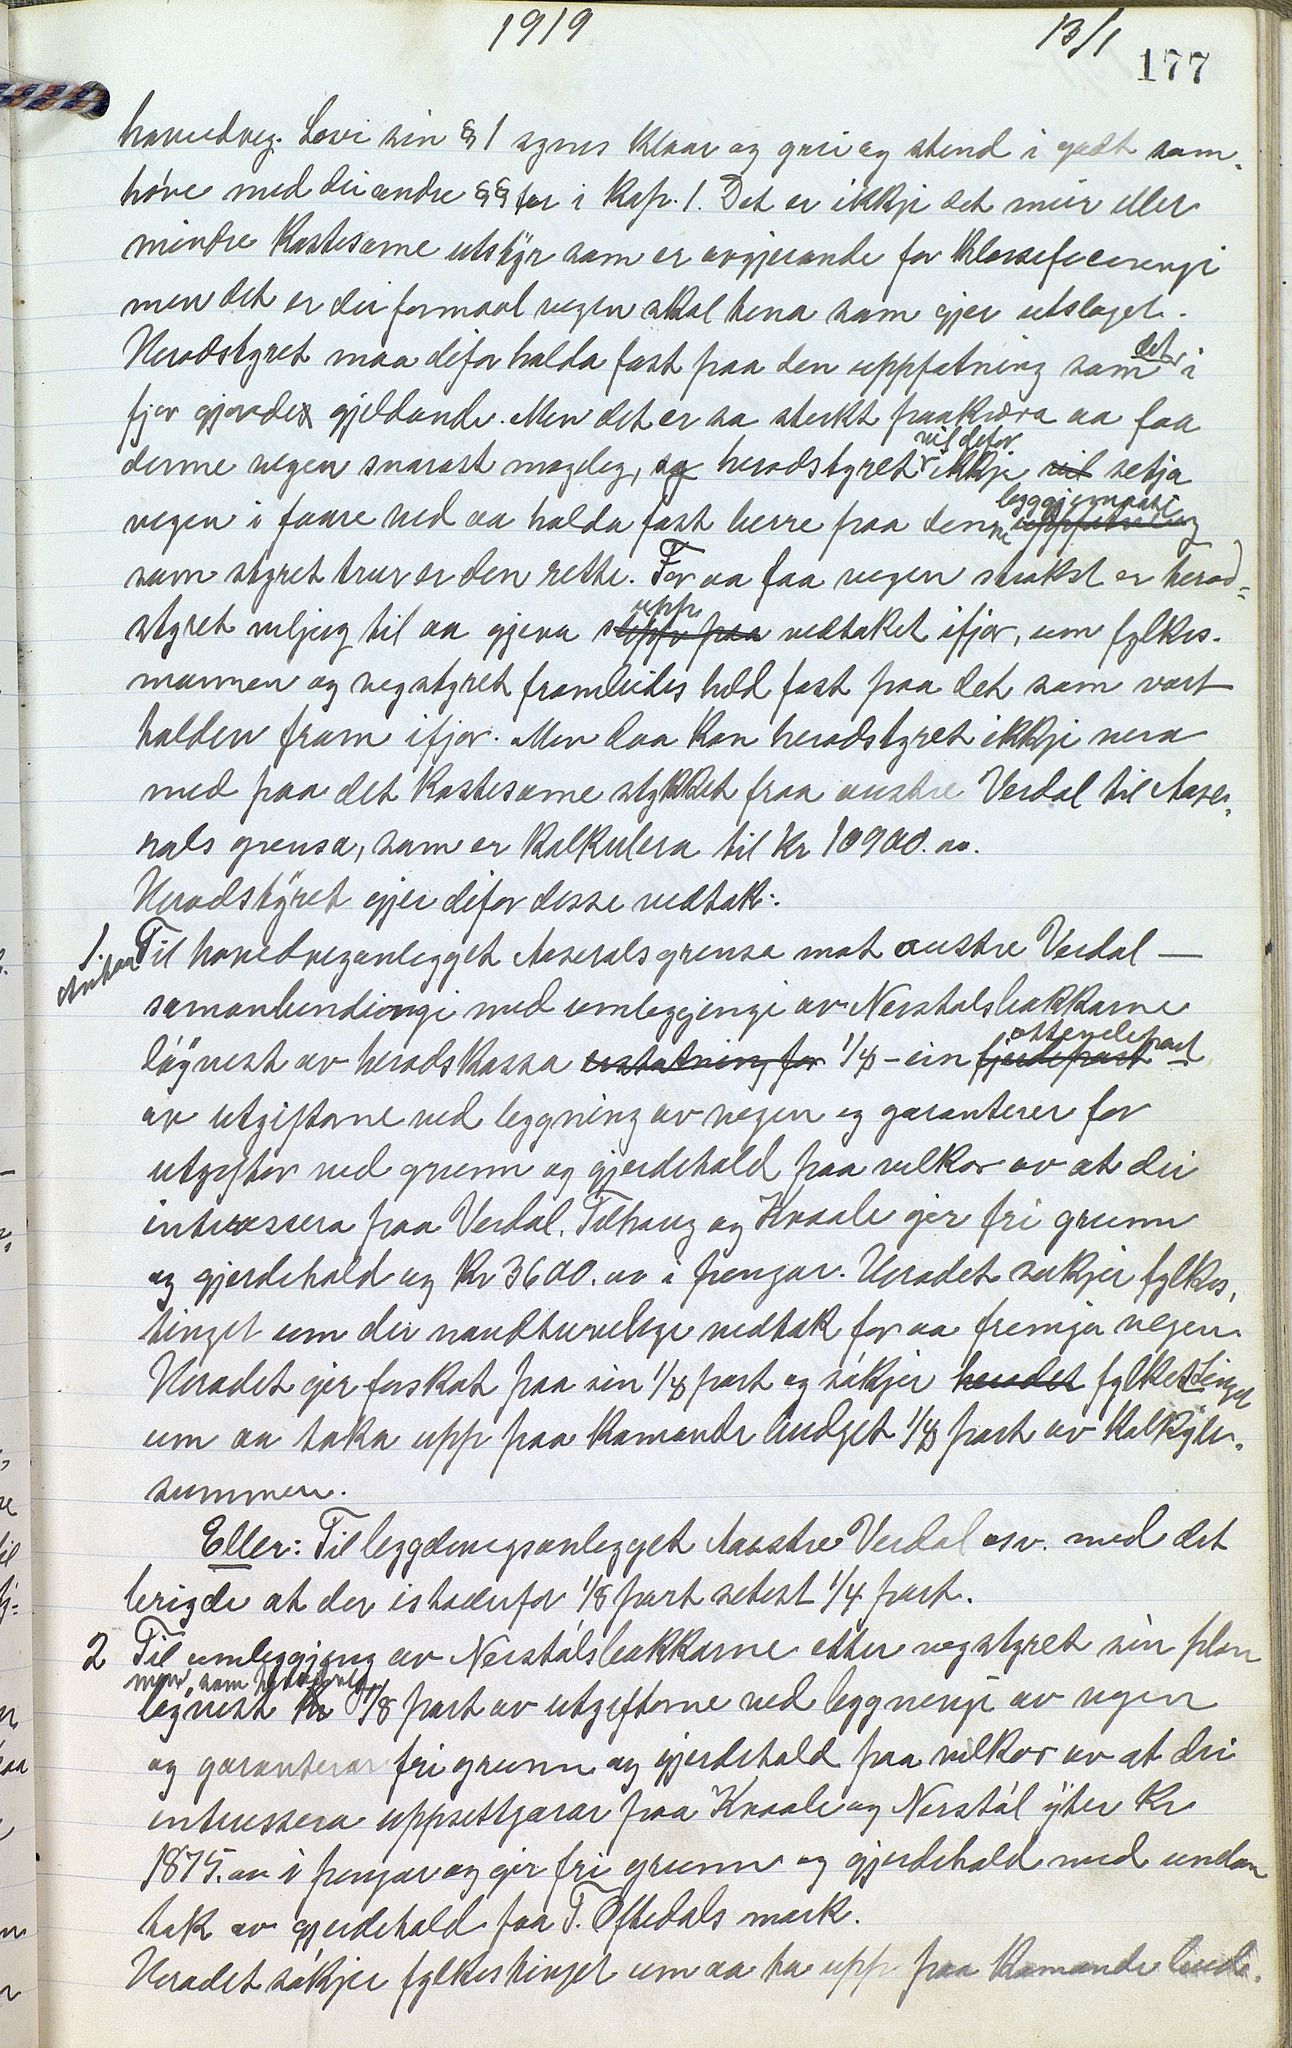 1919 13/1
177
hovudveg. Lovi sin § 1 synes klaar og grei og stend i godt sam-
høve med dei andre §§ for i kap. 1. Det er ikkji det meir eller
mindre kostesame utstyr som er avgjerande for klassificeringi
men det er dei formaal vegen skal tena som gjer utslaget.
Heradstyret maa difor halda fast paa den uppfatning som det i
fjor gjorde gjeldande. Men det er so sterkt paakravd aa faa
denne vegen snarast mogleg, og heradstyret vil difor ikkje vil setja
vegen i faare ved aa halda fast berre paa denne leggjemaate uppfatning
som styret trur er den rette. For aa faa vegen strakst er herad=
styret viljug til aa gjeva slepp paa upp vedtaket ifjor, um fylkes-
mannen og vegstyret framleides held fast paa det som vart
halden fram ifjor. Men daa kan heradstyret ikkji vera
med paa det kostesame stykket fraa austre Verdal til Aase-
rals grensa, som er kalkulera til kr 10900.oo.
Heradstyret gjer difor desse vedtak:
1. Til hovedveganlegget Aaseralsgrensa mot austre Verdal —
samanbundingi med umleggjingi av Nerstølsbakkarne
løyvest av heradskassa erstatning for 1/8 – ein fjerdepart ottendepart
av utgiftorne ved leggning av vegen og garanterer for
utgifter ved grunn og gjerdehald paa vilkor av at dei
interessera paa Verdal, Tilhaug og Kvaale gjer fri grunn
og gjerdehald og kr 3600.oo i pengar. Heradet søkjer fylkes-
tinget um dei naudturvelege vedtak for aa fremja vegen.
Heradet gjer forskot paa sin 1/8 part og søkjer heradet fylkestinget
um aa taka upp paa komande budget 1/8 part av kalkyle-
summen.
Eller: Til bygdevegsanlegget Austre Verdal osv. med det
brigde at der istadenfor 1/8 part setest 1/4 part.
2 Til umleggjing av Nerstølsbakkarne etter vegstyret sin plan
løyvest kr 1/8 part av utgiftorne ved leggningi av vegen
og garanterar fri grunn og gjerdehald paa vilkor av at dei
interessera uppsettjarar paa Kvaale og Nerstøl yter kr
1875.oo i pengar og gjer fri grunn og gjerdehald med undan
tak av gjerdehald paa T. Oftedals mark.
Heradet søkjer fylkestinget um aa ta upp paa komande bud-